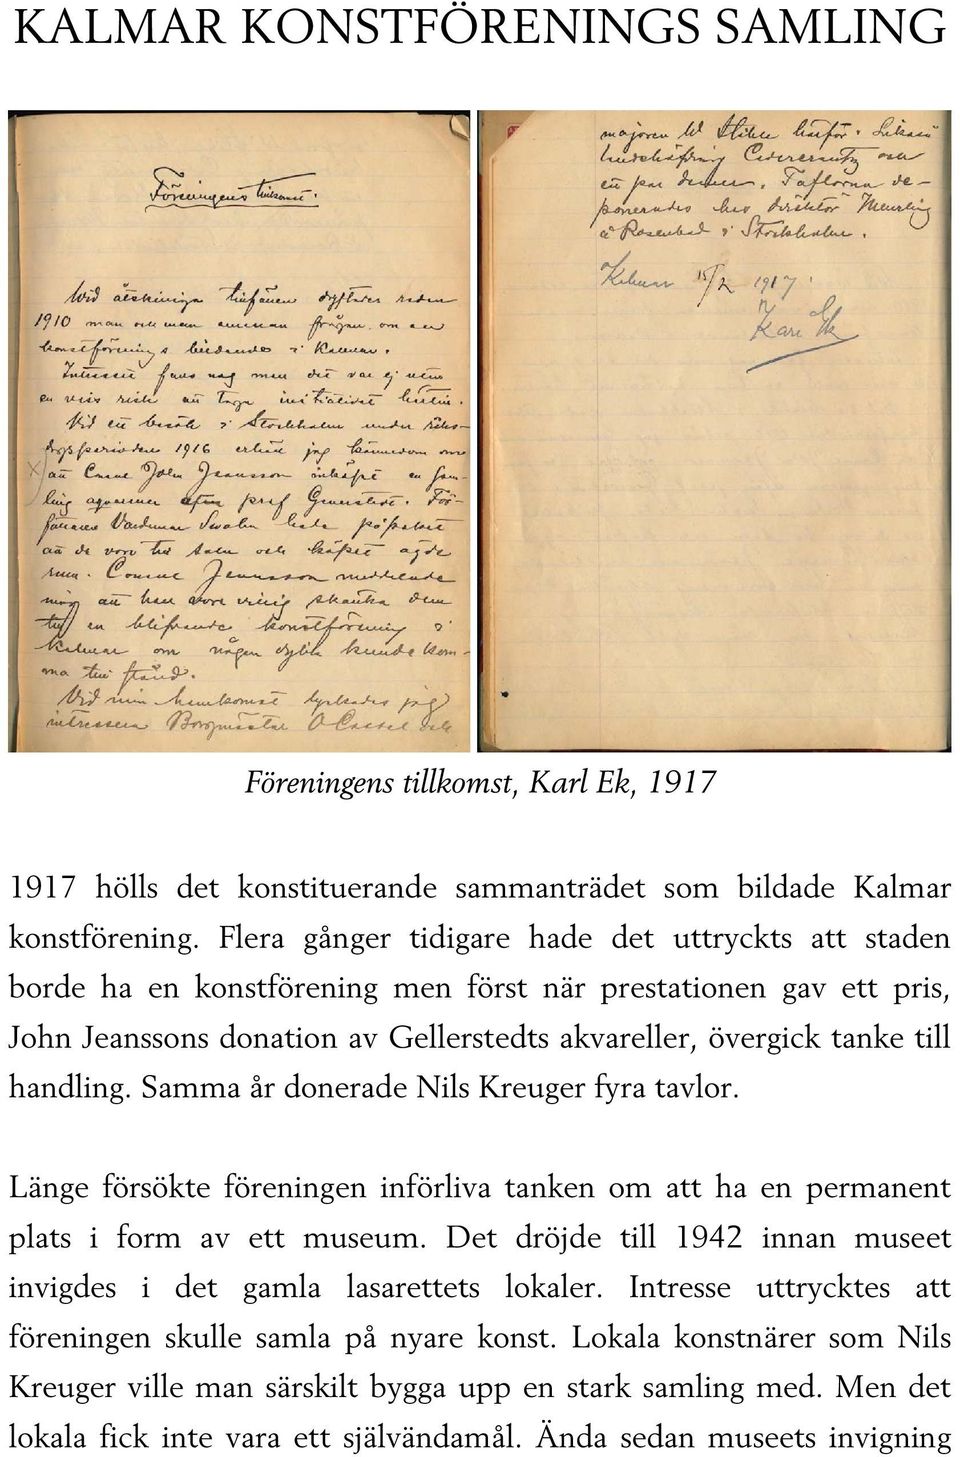 KALMAR KONSTFÖRENINGS SAMLING
Föreningens tillkomst.
Wid åtskiniga tillfällen dryftades redan
1910 man och man emman frågan om en
konstförenings bildande i Kalmar.
Intresset fans nog men det var ej utan
en viss risk att taga initiativet härtill.
Vid ett besök i Stockholm under riks-
dagsperioden 1916 erhöll jag kännedom om
att Consul John Jeansson inköpt en sam-
ling aqvareller efter prof Gellerstedt. För-
fattaren Waldemar Swahn hade påpekat
att de voro till salu och köpet ägde
rum. Consul Jeansson meddelade
mig att han vore villig skänka dem
till en blifvande konstförening i
Kalmar om någon dylik kunde kom-
ma till stånd.
Vid min hemkomst lyckades jag
intressera Borgmästar O Cassel och
majoren W häför. Likaså
landshöfding Cedercrantz och
ett par damer. Taflorna de-
ponerades hos direktör Meurling
å Rosenbad i Stockholm.
Kalmar 15/2 1917.
Karl Ek
Föreningens tillkomst, Karl Ek, 1917
1917 hölls det konstituerande sammanträdet som bildade Kalmar
konstförening. Flera gånger tidigare hade det uttryckts att staden
borde ha en konstförening men först när prestationen gav ett pris,
John Jeanssons donation av Gellerstedts akvareller, övergick tanke till
handling. Samma år donerade Nils Kreuger fyra tavlor.
Länge försökte föreningen införliva tanken om att ha en permanent
plats i form av ett museum. Det dröjde till 1942 innan museet
invigdes i det gamla lasarettets lokaler. Intresse uttrycktes att
föreningen skulle samla på nyare konst. Lokala konstnärer som Nils
Kreuger ville man särskilt bygga upp en stark samling med. Men det
lokala fick inte vara ett självändamål. Ända sedan museets invigning